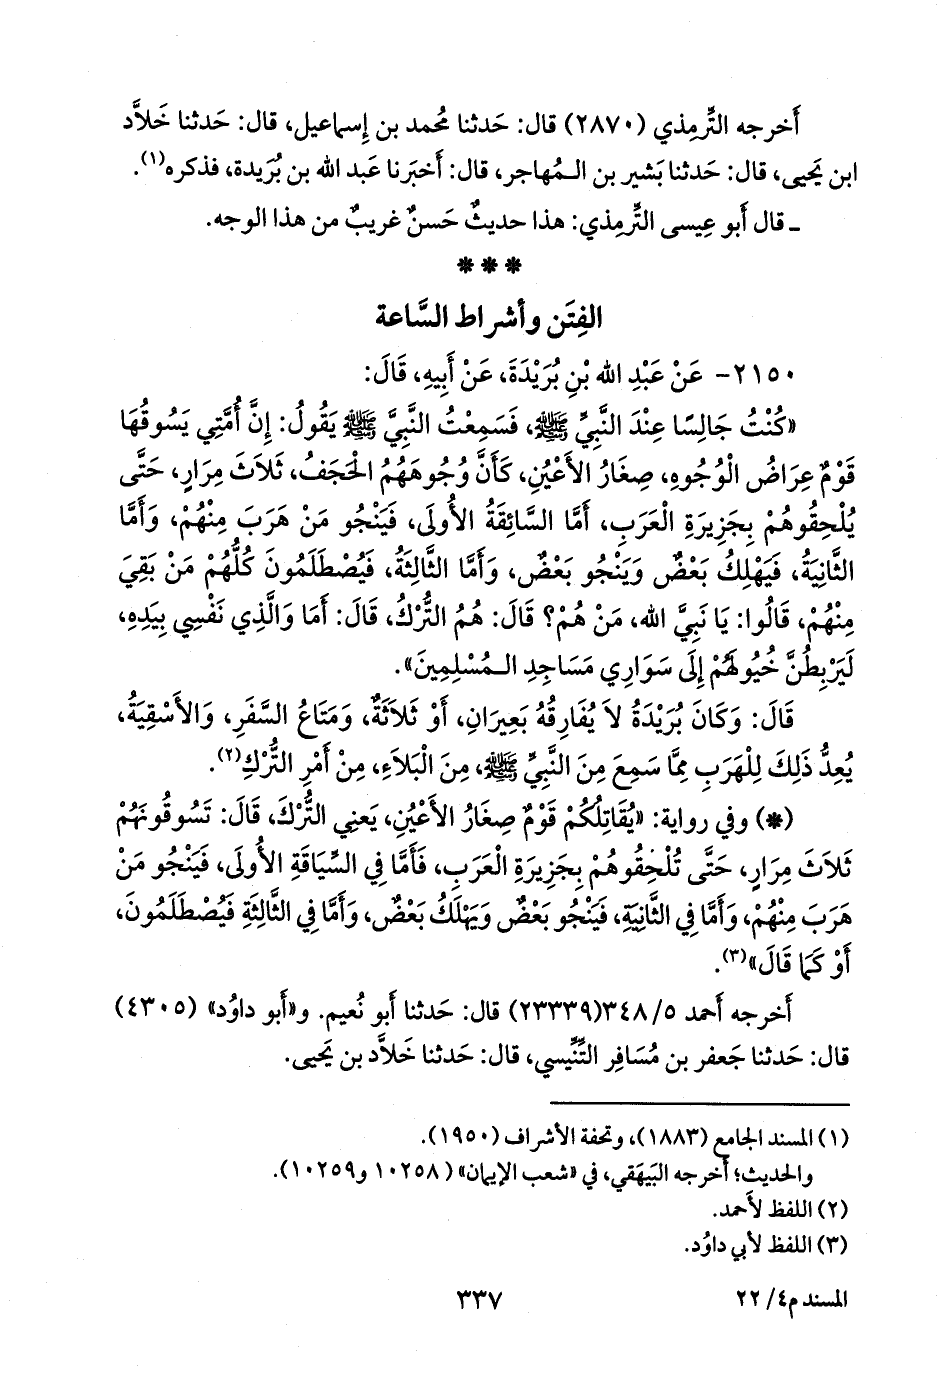 أَخرجه التِّرمِذي (٢٨٧٠) قال: حَدثنا مُحمد بن إِسماعيل، قال: حَدثنا خَلاَّد
ابن يَحيى، قال: حَدثنا بَشير بن الـمُهاجر، قال: أَخبَرنا عَبد الله بن بُرَيدة، فذكره(١).
ـ قال أَبو عِيسى التِّرمِذي: هذا حديثٌ حَسنٌ غريبٌ من هذا الوجه.
* * *
الفِتَن وأشراط السَّاعة
٢١٥٠- عَنْ عَبْدِ الله بْنِ بُرَيْدَةَ، عَنْ أَبِيهِ، قَالَ:
«كُنْتُ جَالِسًا عِنْدَ النَّبِيِّ ﷺ، فَسَمِعْتُ النَّبِيَّ ﷺ يَقُولُ: إِنَّ أُمَّتِي يَسُوقُهَا
قَوْمٌ عِرَاضُ الْوُجُوهِ، صِغَارُ الأَعْيُنِ، كَأَنَّ وُجُوهَهُمُ الْحَجَفُ، ثَلاَثَ مِرَارٍ، حَتَّى
يُلْحِقُوهُمْ بِجَزِيرَةِ الْعَرَبِ، أَمَّا السَّائِقَةُ الأُولَى، فَيَنْجُو مَنْ هَرَبَ مِنْهُمْ، وَأَمَّا
الثَّانِيَةُ، فَيَهْلِكُ بَعْضٌ وَيَنْجُو بَعْضٌ، وَأَمَّا الثَّالِثَةُ، فَيُصْطَلَمُونَ كُلُّهُمْ مَنْ بَقِيَ
مِنْهُمْ، قَالُوا: يَا نَبِيَّ الله، مَنْ هُمْ؟ قَالَ: هُمُ التُّرْكُ، قَالَ: أَمَا وَالَّذِي نَفْسِي بِيَدِهِ،
لَيَرْبِطُنَّ خُيُولَهُمْ إِلَى سَوَارِي مَسَاجِدِ الـمُسْلِمِينَ».
قَالَ: وَكَانَ بُرَيْدَةُ لاَ يُفَارِقُهُ بَعِيرَانِ، أَوْ ثَلاَثَةٌ، وَمَتَاعُ السَّفَرِ، وَالأَسْقِيَةُ،
يُعِدُّ ذَلِكَ لِلْهَرَبِ مِمَّا سَمِعَ مِنَ النَّبِيِّ ﷺ، مِنَ الْبَلاَءِ، مِنْ أَمْرِ التُّرْكِ(٢).
(*) وفي رواية: «يُقَاتِلُكُمْ قَوْمٌ صِغَارُ الأَعْيُنِ، يَعنِي التُّرْكَ، قَالَ: تَسُوقُونَهُمْ
ثَلاَثَ مِرَارٍ، حَتَّى تُلْحِقُوهُمْ بِجَزِيرَةِ الْعَرَبِ، فَأَمَّا فِي السِّيَاقَةِ الأُولَى، فَيَنْجُو مَنْ
هَرَبَ مِنْهُمْ، وَأَمَّا فِي الثَّانِيَةِ، فَيَنْجُو بَعْضٌ وَيَهْلَكُ بَعْضٌ، وَأَمَّا فِي الثَّالِثَةِ فَيُصْطَلَمُونَ،
أَوْ كَمَا قَالَ»(٣).
أَخرجه أَحمد ٥/ ٣٤٨(٢٣٣٣٩) قال: حَدثنا أَبو نُعيم. و«أَبو داوُد» (٤٣٠٥)
قال: حَدثنا جَعفر بن مُسَافِر التِّنِّيسي، قال: حَدثنا خَلاَّد بن يَحيى.
(١) المسند الجامع (١٨٨٣)، وتحفة الأشراف (١٩٥٠).
والحديث؛ أَخرجه البَيهَقي، في «شعب الإيمان» (١٠٢٥٨ و١٠٢٥٩).
(٢) اللفظ لأَحمد.
(٣) اللفظ لأَبي داوُد.
المسند م٤/ ٢٢
٣٣٧